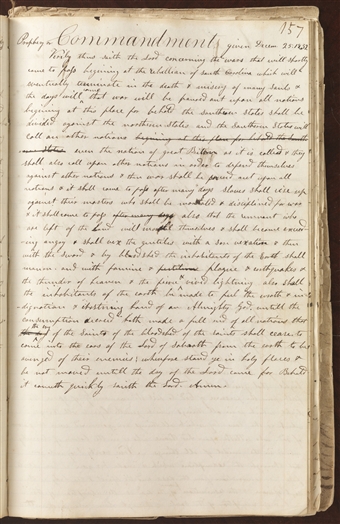 157
Prophecy or Commandment given Decem 25: 1832
Verily thus saith the Lord concerning the wars that will shortly
come to pass begining at the rebellion of South Carolina which will
eventually terminate in the death & missery of many Souls &
the days will that war will be poured out upon all nations
begining at this place for behold the Southern States shall be
divided against the northern States and the Southern States will
call on other nations begining at this place for behold the south
even the nation of great Britain as it is called & they
shall also call upon other nations in order to defend themselves
against other nations & thus war shall be poured out upon all
nations & it shall come to pass after many days slaves shall rise up
against their masters who shall be & disciplined for war
& it shall come to pass after many days also that the remnant who
are left of the land will themselves & shall become exceed
ing angry & shall vex the gentiles with a sore vexation & thus
with the Sword & by blood shed the inhabitants of the Earth shall
mourn and with famine & plague & earthquakes &
the thunder of heaven & the fierce & vivid lightning also shall
the inhabitants of the earth be made to feel the wrath & in
dignation & chastening hand of an Almighty God, untill the
consumption decreed hath made a full end of all nations, that
the cry of the Saints & the bloodshed of the saints shall cease to
come into the ears of the Lord of Sabaoth from the earth to be
avenged of their enemies; wherefore stand ye in holy places &
be not moved untill the day of the Lord come for Behold
it cometh quickly saith the Lord. Amen.